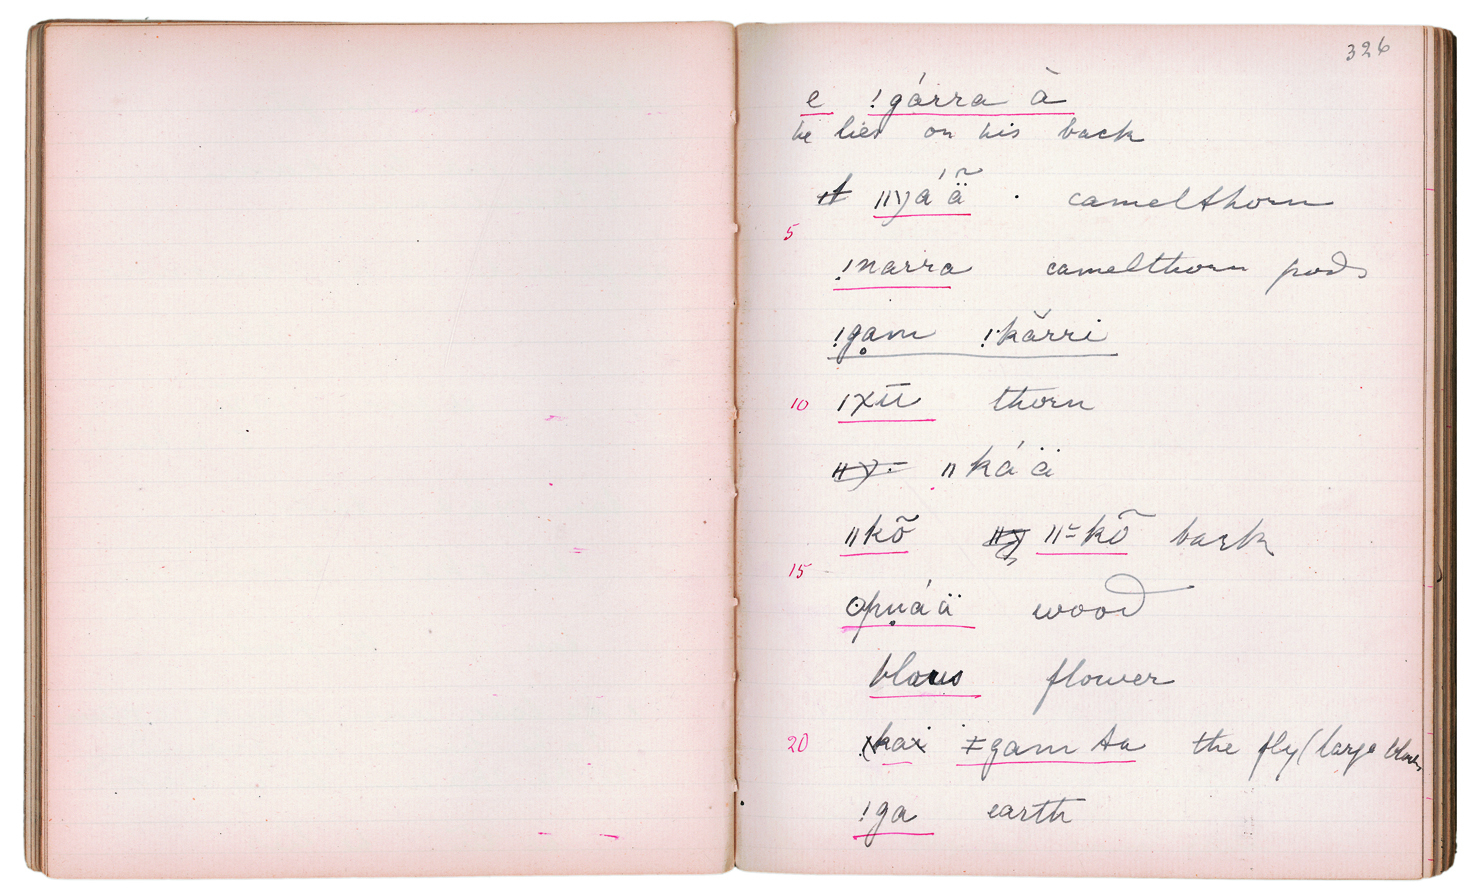 326
e !gárra à
he lies on his back
ǁγá'ä̃ · camelthorn
5
!narra camelthorn pods
!gam !kărri
10 ǀxū thorn
ǁká'ä
ǁkõ ǁ=kõ bark
15
ʘpuá'ä wood
blous flower
20 kai ǂgam ta the fly (large
!ga earth